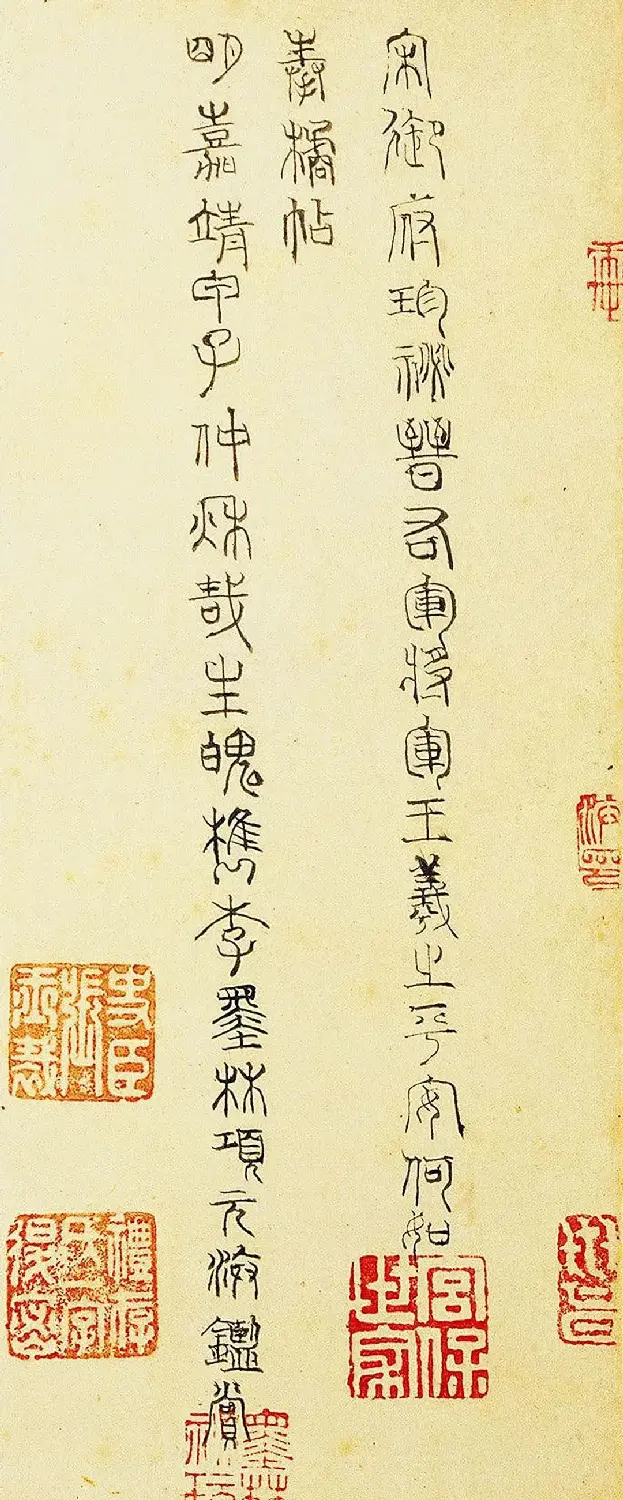 宋御府珍祕晉右軍將軍王羲之平安何如
奉橘帖
明嘉靖甲子仲秋哉生魄檇李墨林項元汴鑑賞
宮保世家